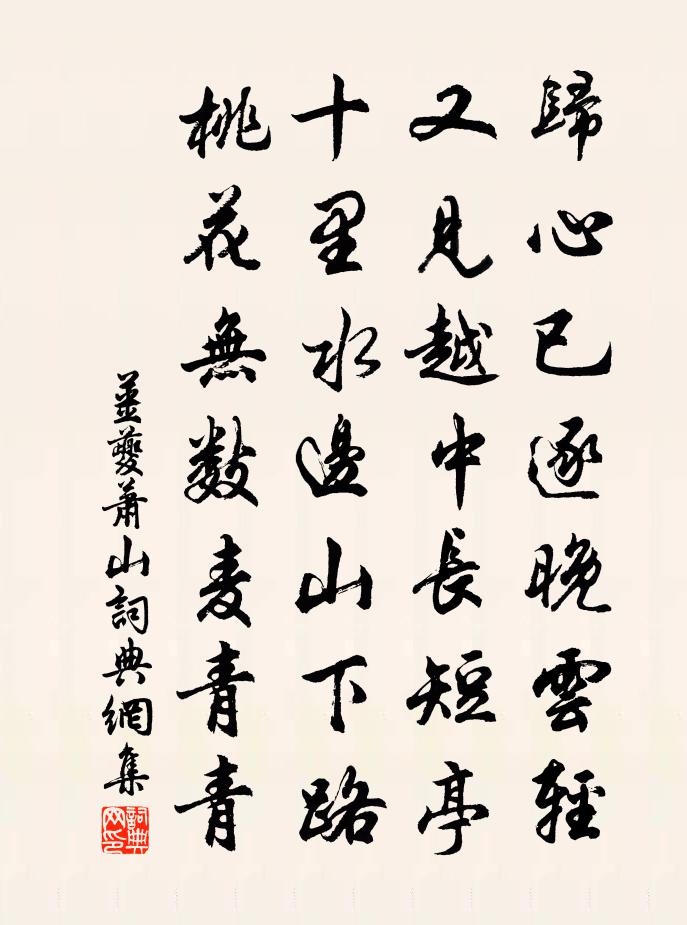 歸心已逐晚雲輕
又見越中長短亭
十里水邊山下路
桃花無數麦青青
姜夔蕭山詞典網集
詞典網印